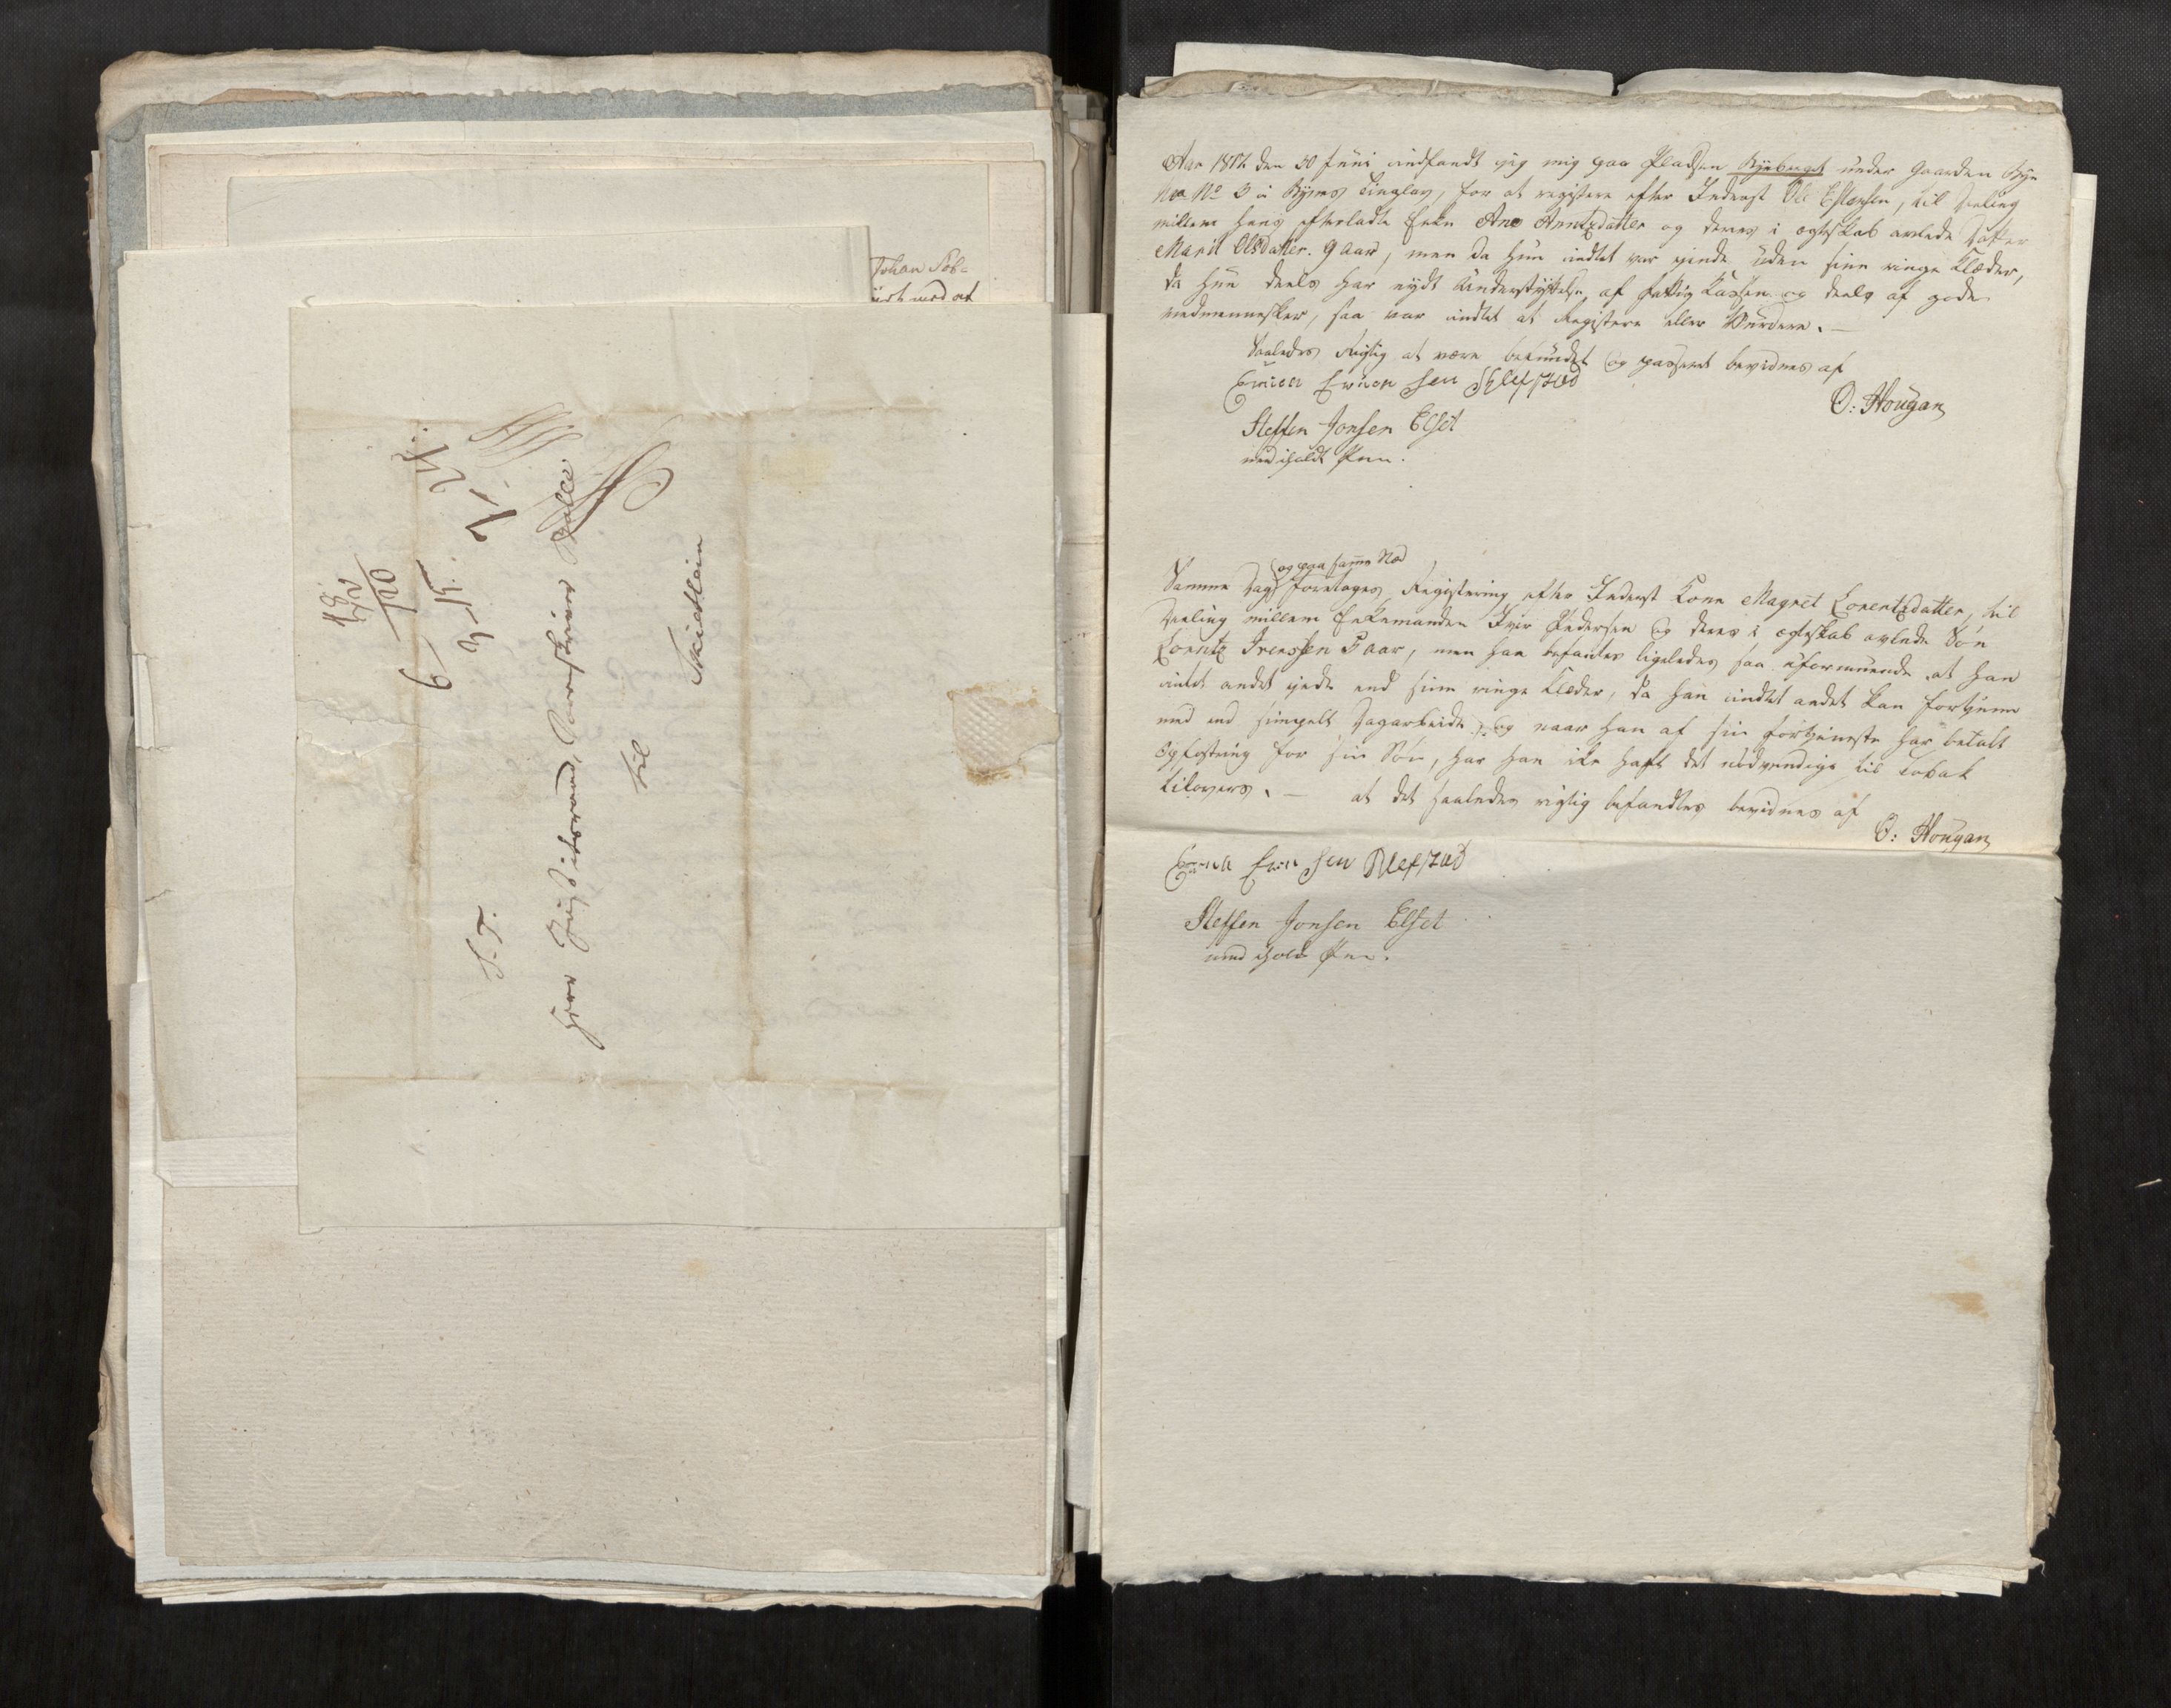 Johan Sol-
S. T.
Herr Justitsraad, Soorenskriver Balle
til
Skiedtlein
Aar 1812 den 30 Juni indfandt jeg mig paa Pladsen Byebugt under Gaarden Bye
No 3 i Byens Tinglav, for at registere efter Inderst Ole Estensen, til Deeling
millem hans efterladte Enke Ane Arentzdatter og deres i ægteskab avlede Datter
Marit Olsdatter 9 aar, men da hun indtet var ejende uden sine ringe Klæder,
da hun deels har nydt Understyttelse, af Fattig Kassen og deels af gode
medmennesker, saa var indtet at Registere eller Vurdere. —
Saaledes Rigtig at være befundet og passeret bevidnes af
O: Hougan
Steffen Jonsen Elset
med iholdt Pen.
og paa samme Sted
Samme Dag foretoges Registering efter Inderst Kone Magret Lorentzdatter, til
Deeling millem Enkemanden Iver Pedersen og deres i ægteskab avlede Søn
Lorentz Iverssen 5 aar, men han befantes ligeledes saa uformuende at han
intet andet ejede end sine ringe Klæder, da han indtet andet kan fortjene
med end simpelt Dagarbeide, og naar han af sin fortjeneste har betalt
Opfostring for sin Søn, har han ike haft det nødvendige til Tobak
tilovers. — at det saaledes rigtig befandtes bevidnes af
O: Hougan
Steffen Jonsen Elset
med iholdt Pen.